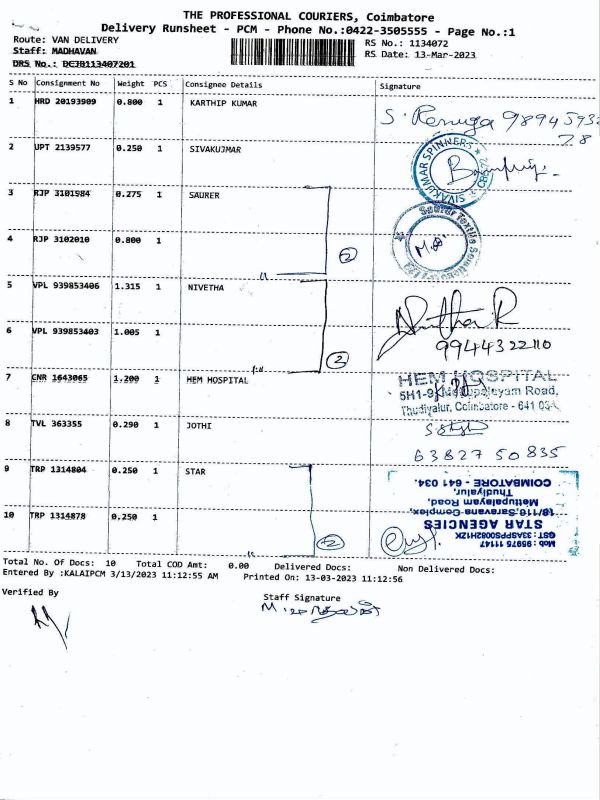 THE PROFESSIONAL COURIERS, Coimbatore
Delivery Runsheet - PCM - Phone No.:0422-3505555 - Page No.:1
Route: VAN DELIVERY RS No.: 1134072
Staff: MADHAVAN RS Date: 13-Mar-2023
DRS No.:
S No Consignment No Weight PCS Consignee Details Signature
1 HRD 20193909 0.800 1 KARTHIP KUMAR
S. Renuga 98945932
78
2 UPT 2139577 0.250 1 SIVAKUJMAR
SIVAKUMAR SPINNERS
3 RJP 3101984 0.275 1 SAURER
Saurer Textile Solutions
4 RJP 3102010 0.800 1
2
5 VPL 939853406 1.315 1 NIVETHA
Nivetha R
9944322110
6 VPL 939853403 1.005 1
2
7 CNR 1643065 1.200 1 HEM HOSPITAL
HEM HOSPITAL
5H1-9, Mettupalayam Road,
Thudiyalur, Coimbatore - 641 034.
8 TVL 363355 0.290 1 JOTHI
63827 50835
9 TRP 1314804 0.250 1 STAR
10 TRP 1314878 0.250 1
2
Mob : 95975 11147
GST : 33ASPPS0082H1ZK
STAR AGENCIES
18/116, Saravana Complex,
Mettupalayam Road,
Thudiyalur,
COIMBATORE - 641 034.
Total No. Of Docs: 10 Total COD Amt: 0.00 Delivered Docs: Non Delivered Docs:
Entered By :KALAIPCM 3/13/2023 11:12:55 AM Printed On: 13-03-2023 11:12:56
Verified By Staff Signature